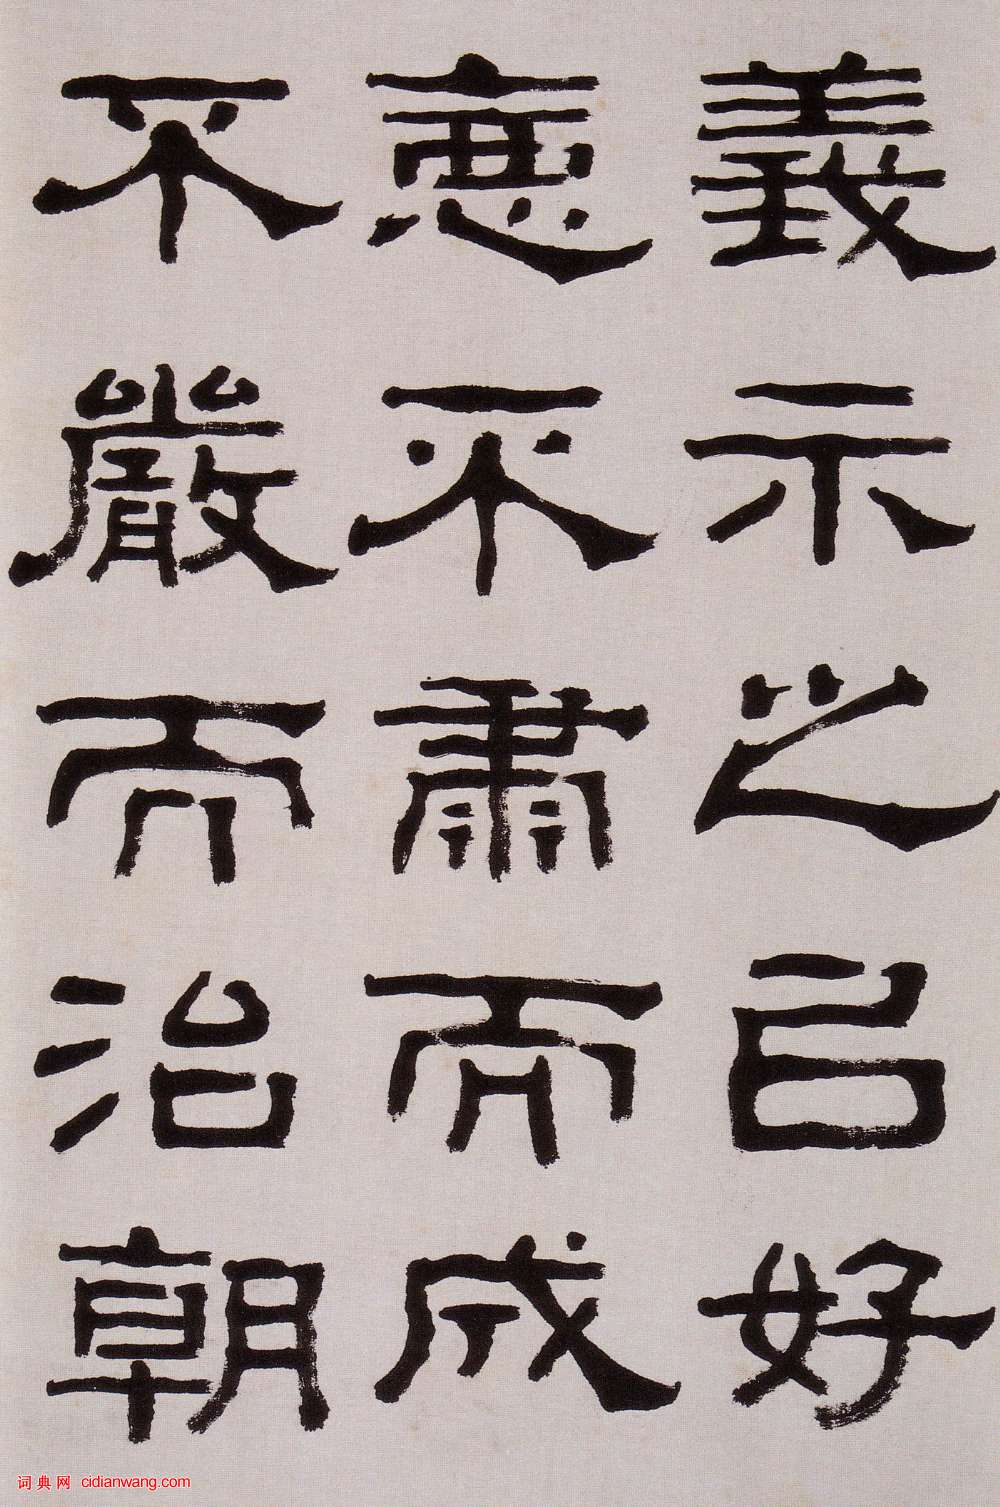 義示之㠯好
惡不肅而成
不嚴而治朝
词典网 cidianwang.com